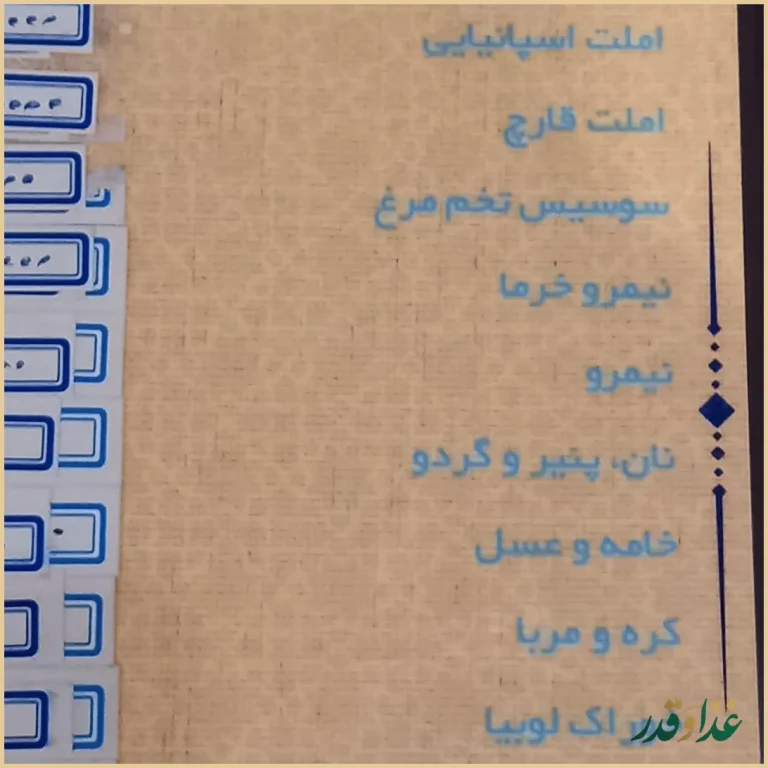 املت اسپانیایی
املت قارچ
سوسیس تخم مرغ
نیمرو خرما
نیمرو
نان، پنیر و گردو
خامه و عسل
کره و مربا
لوبیا
غذا و قدر